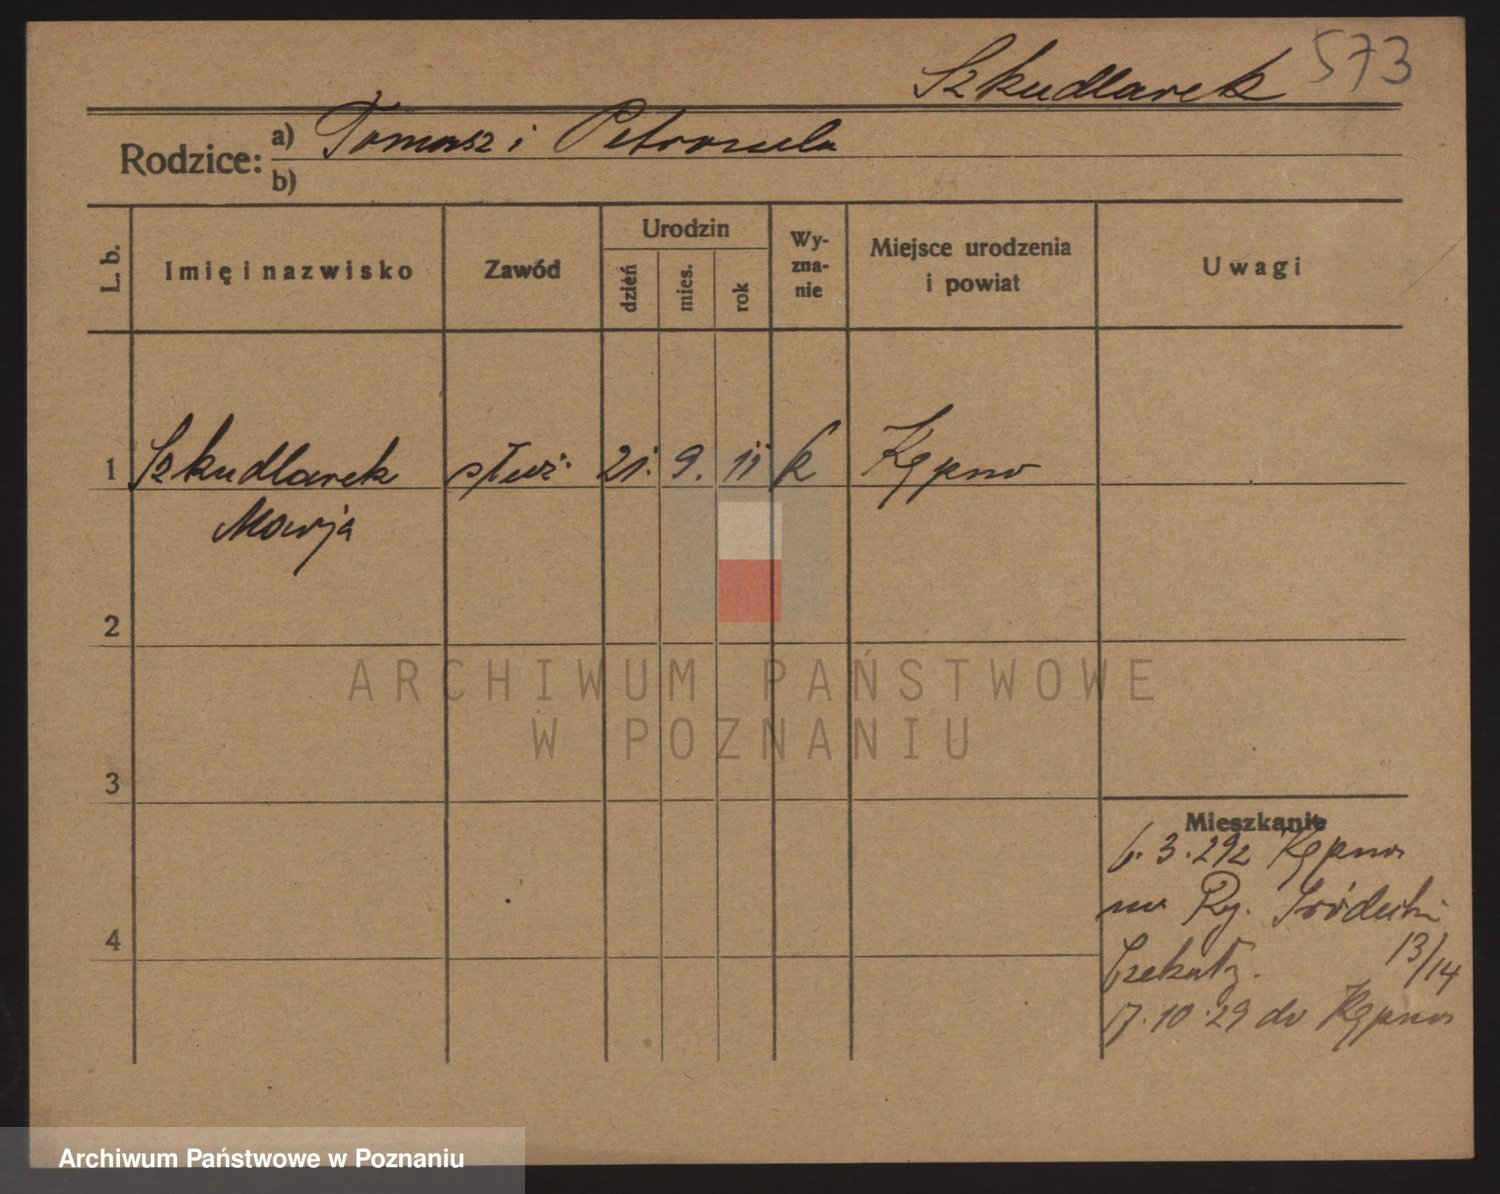 Szkudlarek 573
Rodzice: a) Tomasz i Petronela
b)
L. b. Imię i nazwisko Zawód Urodzin dzień mies. rok Wy-zna-nie Miejsce urodzenia i powiat Uwagi
1 Szkudlarek służ. 21. 9. 11 k Kępno
Marja
2
3
4
Mieszkanie
6.3.29 z Kępna
na Ry. Śródecki
13/14
17.10.29 do Kępna
ARCHIWUM PAŃSTWOWE
W POZNANIU
Archiwum Państwowe w Poznaniu